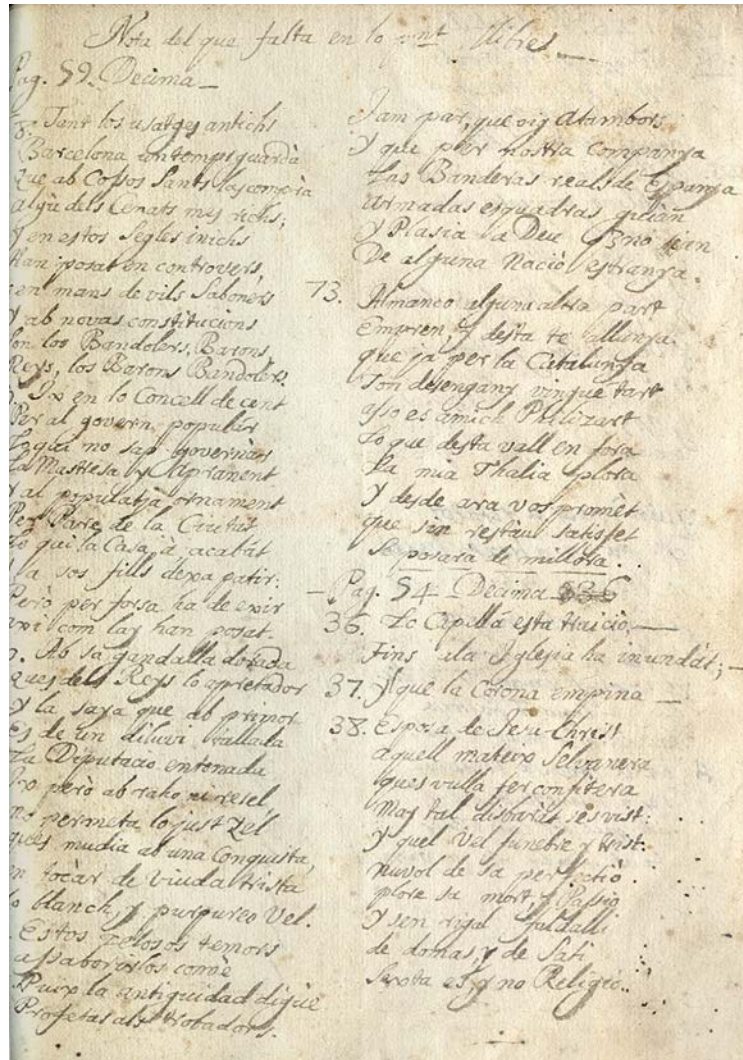 Nota del que falta en lo pnt. llibre
Pag. 59. Decima
Tant los usatges antichs
Barcelona un temps guardà
Que ab Cossos Sants las comprà
algù dels Cenats mes richs;
Y en estos segles inichs
Han posat en controvers,
en mans de vils Saboners
Y ab novas constitucions
son los Bandolers, Barons,
Reys, los Barons Bandolers.
Ix en lo Concell de cent
Per al govern popular
Lo qui no sap governar
La Mastresa y Apranent
Y al populatja ornament
Per Pare de la Ciutat
Lo qui la Casa jà acabàt
Y a sos fills dexa patir:
Però per forsa ha de exir
axi com lay han posat.
Ab sa gandalla dorada
ques dels Reys lo apretador
Y la saya que ab primor
Es de un diluvi vallada
La Diputacio entonada
Ix però ab rahó
no permeta lo just Zel
ques mudia ab una Conquista,
en tocàr de Viuda trista
lo blanch, y purpureo Vel.
Estos pelosos temors
assaboririlos comè
Puix la antiguidad digüe
Profetas als trobadors.
Jam par, que oig Atambors
Y que per nostra Companya
Las Banderas reals de Espanya
armadas esquadras guian
Y Plasia a Deu q3 no sien
De alguna Naciò estranya.
73. Almanco alguna altra part
Empren, y desta te allunya
que ja per la Catalunya
Ton desengany vingue tart
asso es amich Philizart
Lo que desta vall en fora
La mia Thalia plora
Y desde ara vos promèt
que sin restàu satisfet
Se posarà de millora.
Pag. 54 Decima
36. Lo Capellà esta traició,
Fins ala Iglesia ha inundàt;
37. Y que la Corona empina
38. Esposa de Jesu-Christ
aquell mateix Selvanera
ques vulla fer confitera
May tal disbarat ses vist:
Y quel Vel funebre y trist
nuvol de sa perfectiò
plore sa mort, y Passiò
Y sen rigal faldalli
de domas, y de Sati
Secta es, y no Religiò.